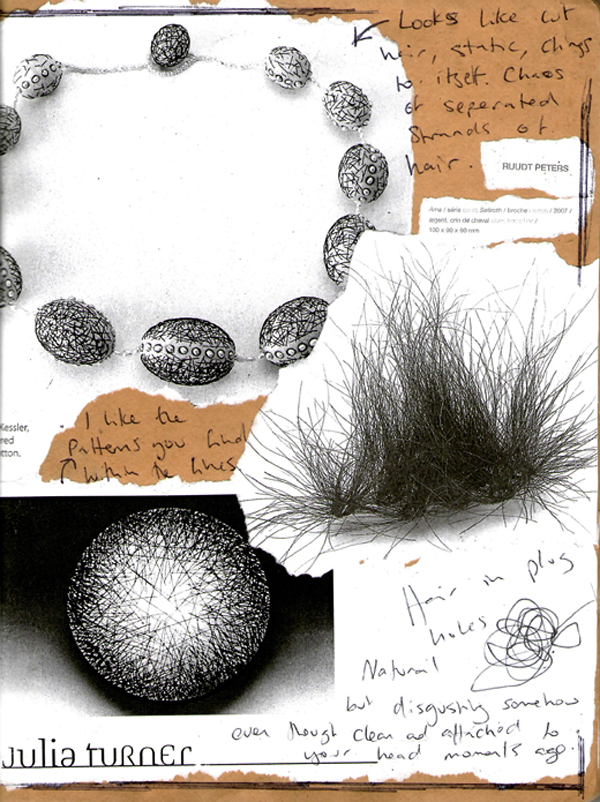 Looks like cut
hair, static, clings
to itself. Chaos
of seperated
strands of
hair.
RUUDT PETERS
Sefiroth / broche / 2007 /
argent, crin de cheval
100 x 90 x 60 mm
Kessler,
red
tton.
I like the
patterns you find
within the lines
Hair in plug
holes
Natural
but disgusting somehow
even though clean and attached to
your head moments ago.
Julia Turner